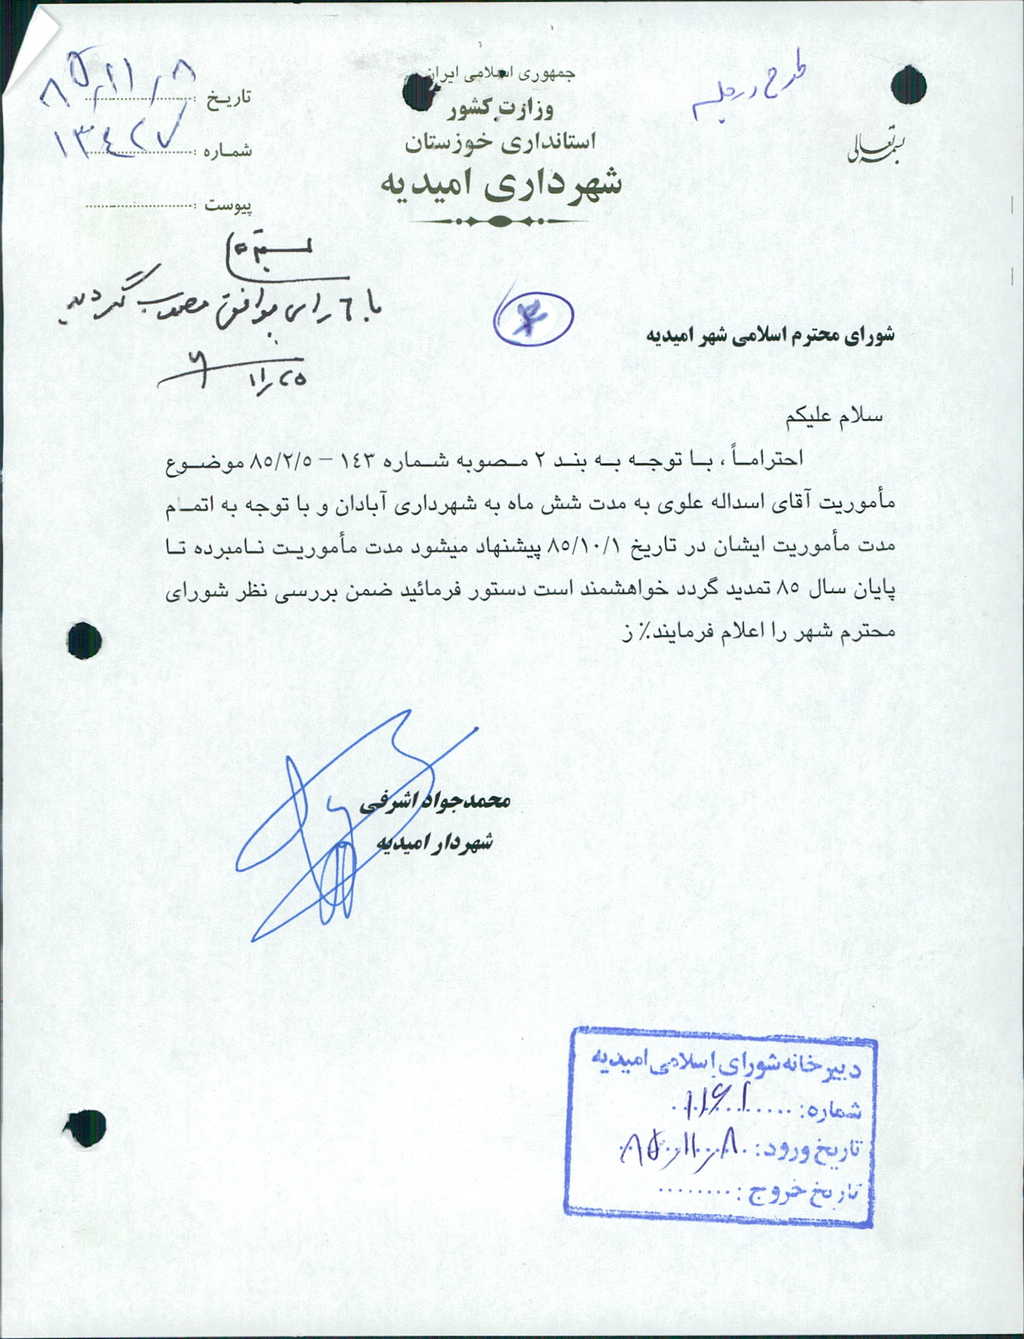 بسمه تعالی
جمهوری اسلامی ایران
وزارت کشور
استانداری خوزستان
شهرداری امیدیه
تاریخ : ۸۵/۱۱/۸
شماره : ۱۳۴۲۷
پیوست :
طرح در جلسه
با ۶ رای موافق مصوب گردید
۱۱/۲۵
۴
شورای محترم اسلامی شهر امیدیه
سلام علیکم
احتراماً ، با توجه به بند ۲ مصوبه شماره ۱۴۳ – ۸۵/۲/۵ موضوع
مأموریت آقای اسداله علوی به مدت شش ماه به شهرداری آبادان و با توجه به اتمام
مدت مأموریت ایشان در تاریخ ۸۵/۱۰/۱ پیشنهاد میشود مدت مأموریت نامبرده تا
پایان سال ۸۵ تمدید گردد خواهشمند است دستور فرمائید ضمن بررسی نظر شورای
محترم شهر را اعلام فرمایند٪ ز
محمدجواد اشرفی
شهردار امیدیه
دبیرخانه شورای اسلامی امیدیه
شماره: ۱۱۶۱
تاریخ ورود: ۸۵/۱۱/۸
تاریخ خروج :